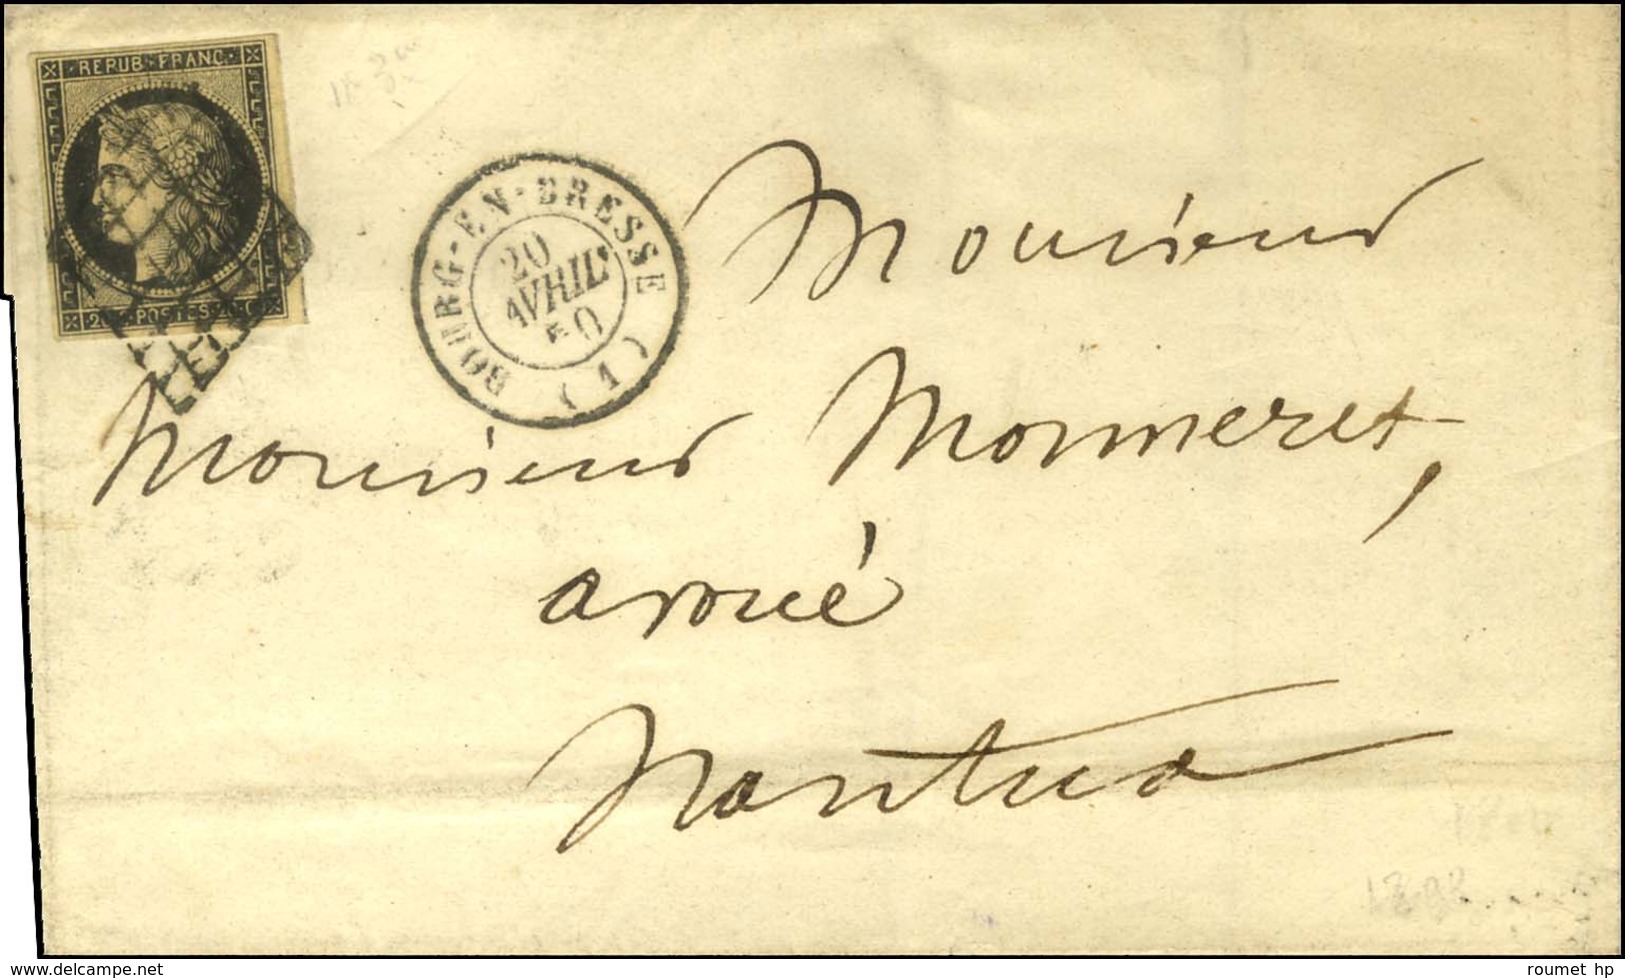 REPUB·FRANC·
20 POSTES 20 C
BOURG-EN-BRESSE (1)
20
AVRIL
0
Monsieur
Monsieur Monneret,
avoué
Nantua
www.delcampe.net
roumet hp